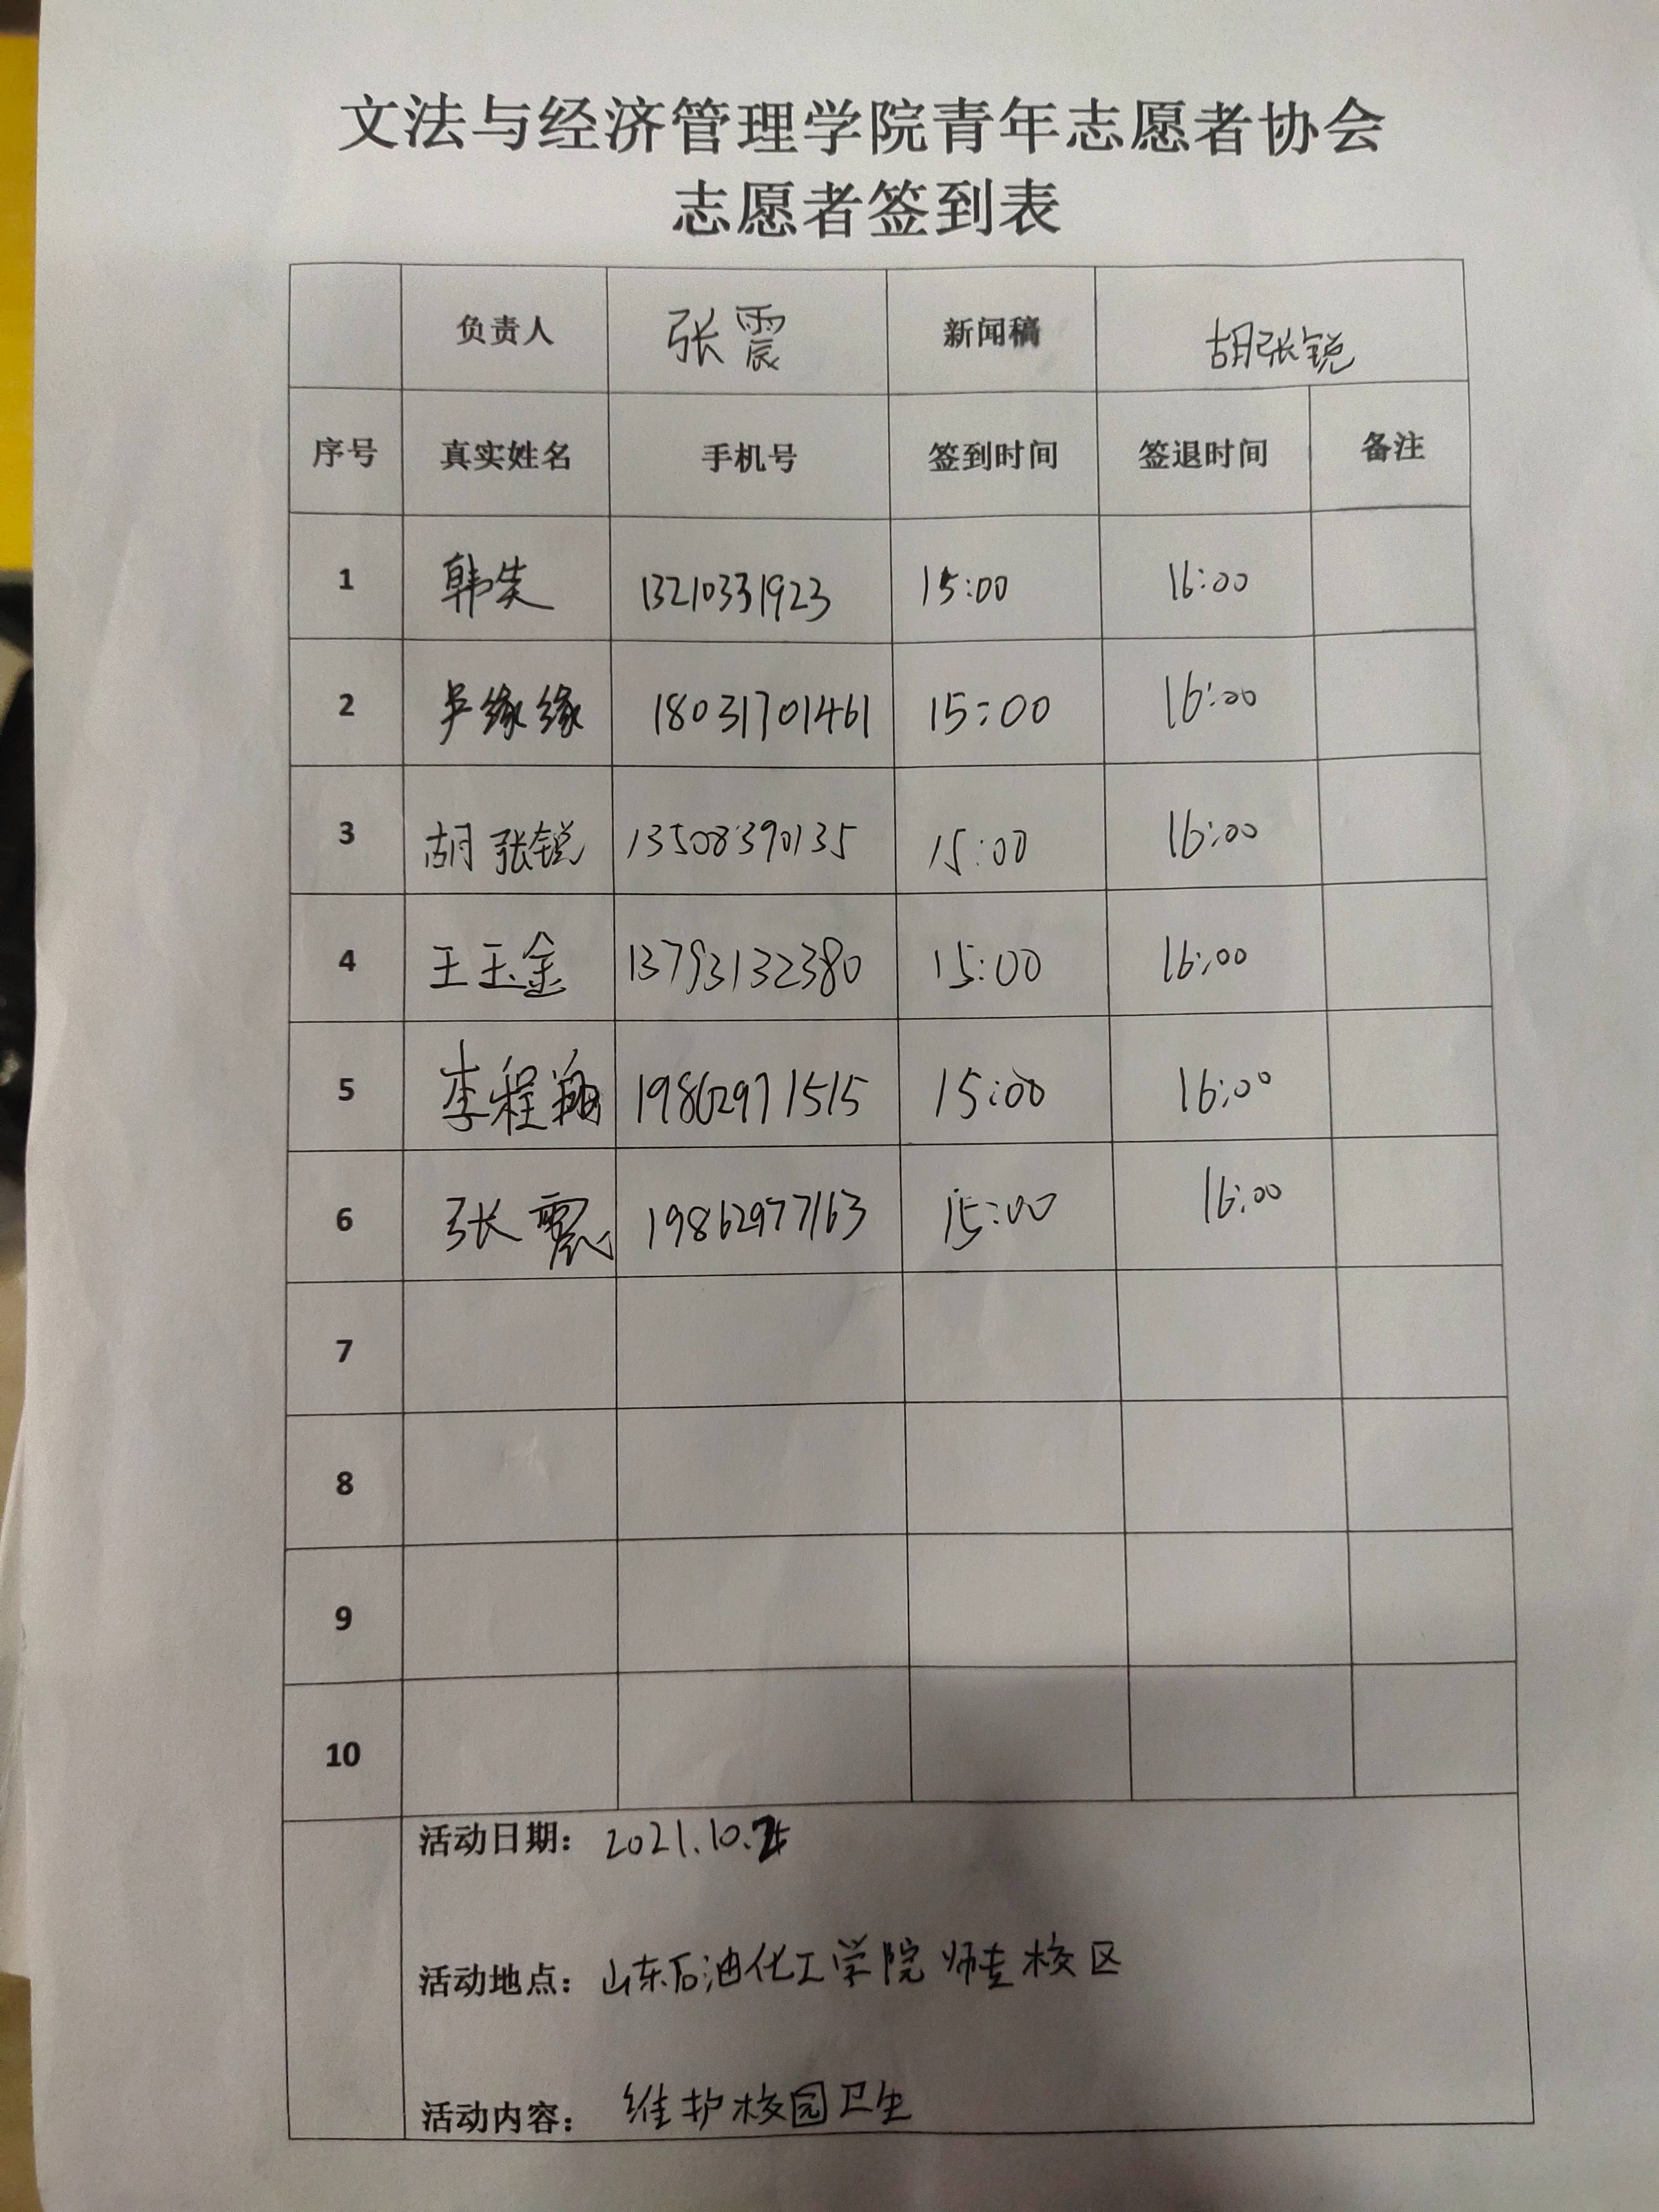 文法与经济管理学院青年志愿者协会
志愿者签到表
负责人 张震 新闻稿 胡张锐
序号 真实姓名 手机号 签到时间 签退时间 备注
1 韩笑 13210331923 15:00 16:00
2 缘缘 18031701461 15:00 16:00
3 胡张锐 13508390135 15:00 16:00
4 王玉金 13793132380 15:00 16:00
5 李程翔 19862971515 15:00 16:00
6 张震 19862977163 15:00 16:00
7
8
9
10
活动日期: 2021.10.
活动地点: 山东石油化工学院师专校区
活动内容: 维护校园卫生